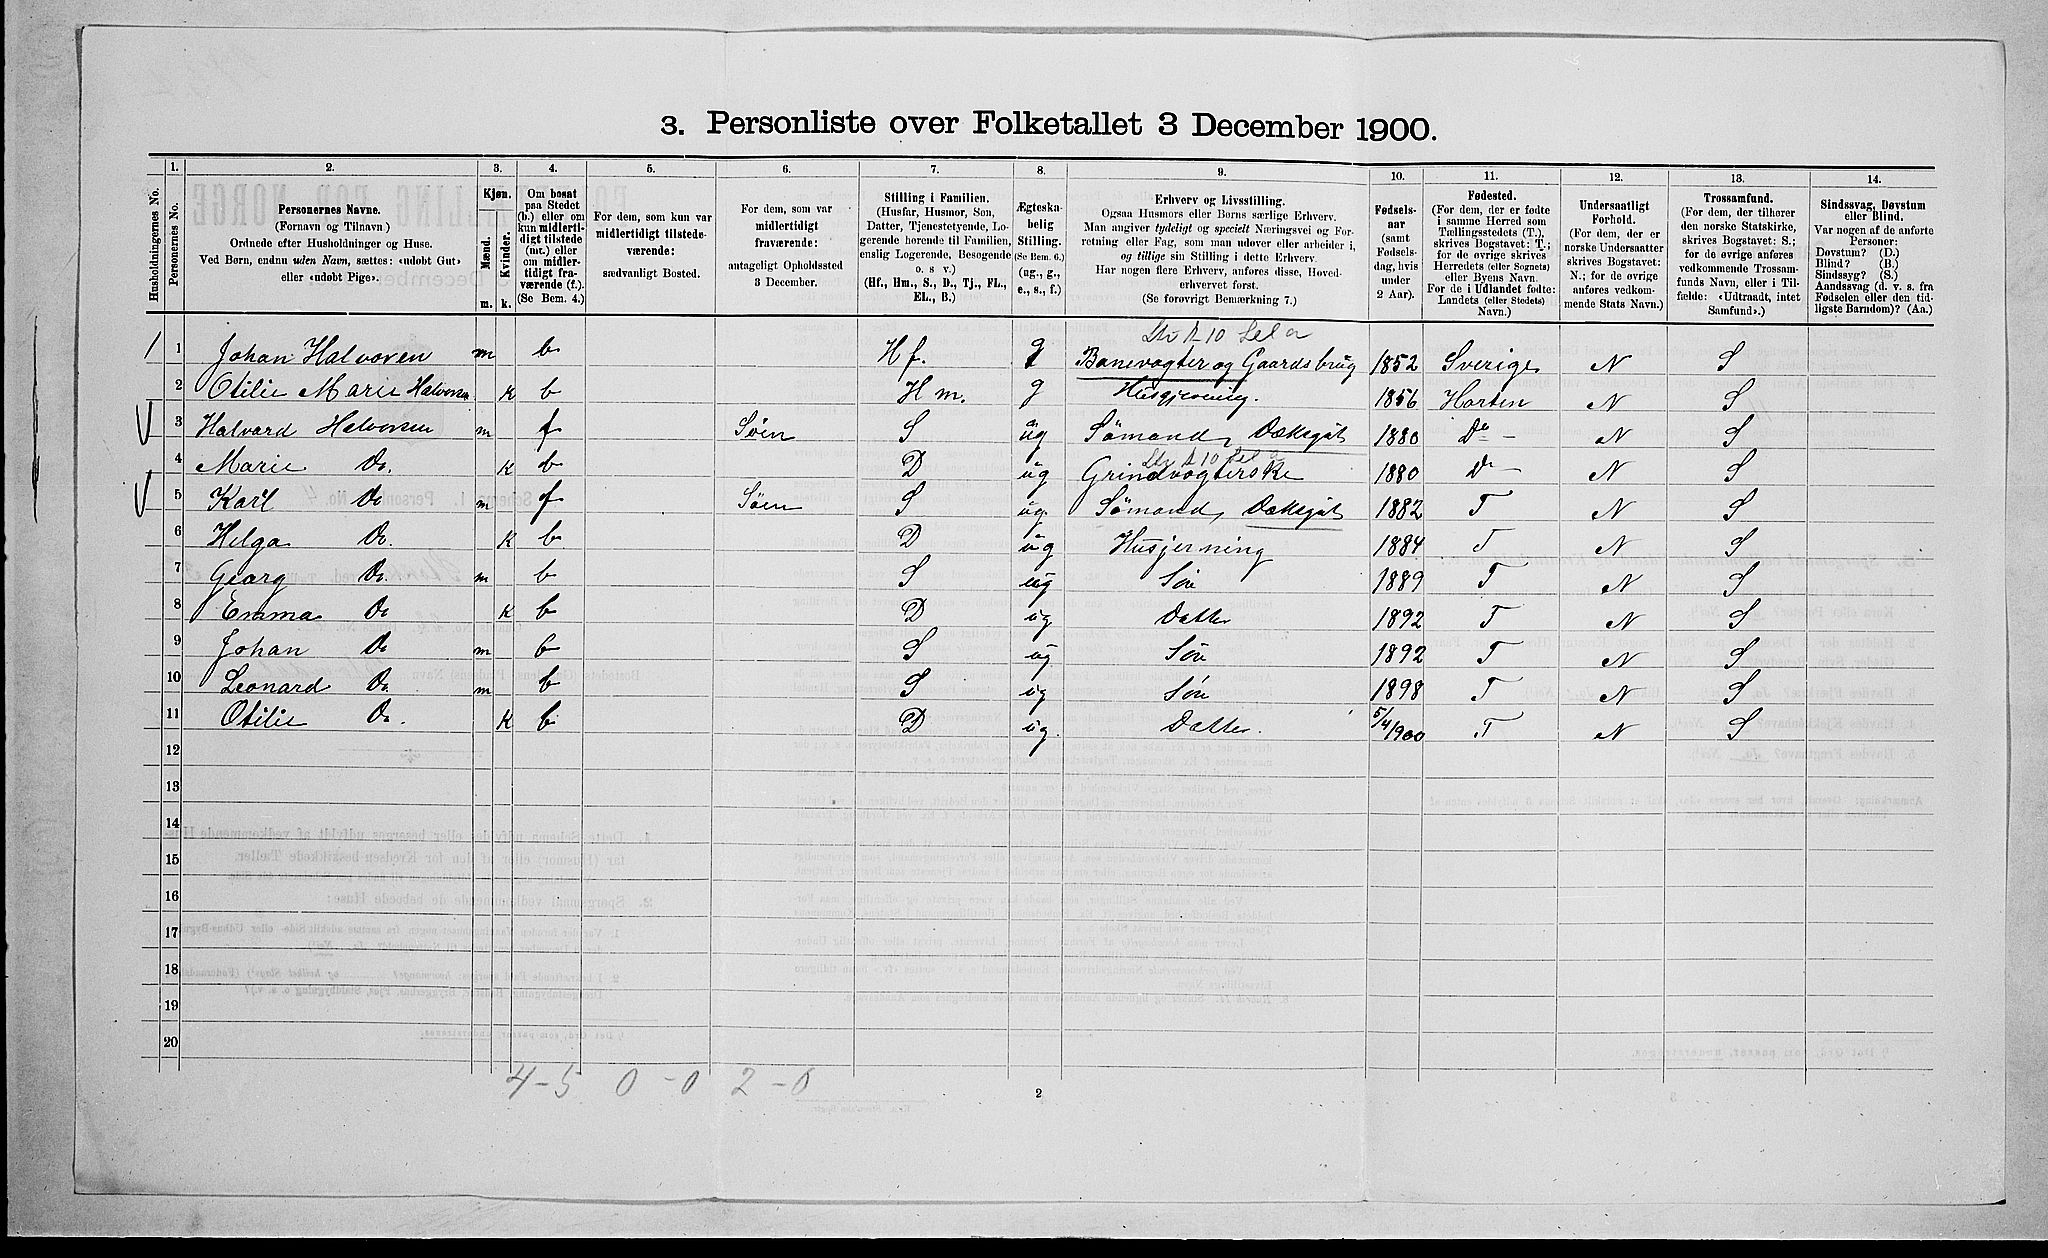 3. Personliste over Folketallet 3 December 1900.
Husholdningernes No.
1.
Personernes No.
2.
Personernes Navne.
(Fornavn og Tilnavn.)
Ordnede efter Husholdninger og Huse.
Ved Børn, endnu uden Navn, sættes: «udobt Gut»
eller «udobt Pige».
3.
Kjøn.
Mænd.
Kvinder.
m.
k.
4.
Om bosat
paa Stedet
(b.) eller om
kun midlerti-
digt tilstede
(mt.) eller
om midler-
tidigt fra-
værende (f.).
(Se Bem. 4.)
5.
For dem, som kun var
midlertidigt tilstede-
værende:
sædvanligt Bosted.
6.
For dem, som var
midlertidigt
fraværende:
antageligt Opholdssted
3 December.
7.
Stilling i Familien.
(Husfar, Husmor, Søn,
Datter, Tjenestetyende, Lo-
gerende hørende til Familien,
enslig Logerende, Besøgende
o. s v.)
(Hf., Hm., S., D., Tj., FL.,
EL., B.)
8.
Ægteska-
belig
Stilling.
(Se Bem. 6.)
(ug., g.,
e., s., f.)
9.
Erhverv og Livsstilling.
Ogsaa Husmors eller Børns særlige Erhverv.
Man angiver tydeligt og specielt Næringsvei og For-
retning eller Fag, som man udøver eller arbeider i,
og tillige sin Stilling i dette Erhverv.
Har nogen flere Erhverv, anføres disse, Hoved-
erhvervet først.
(Se forøvrigt Bemærkning 7.)
10.
Fødsels-
aar
(samt
Fødsels-
dag, hvis
under
2 Aar).
11.
Fødested.
(For dem, der er fødte
i samme Herred som
Tællingsstedets (T.),
skrives Bogstavet: T.;
for de øvrige skrives
Herredets (eller Sognets)
eller Byens Navn.
For de i Udlandet fødte:
Landets (eller Stedets)
Navn.)
12.
Undersaatligt
Forhold.
(For dem, der er
norske Undersaatter
skrives Bogstavet:
N.; for de øvrige
anføres vedkom-
mende Stats Navn.)
13.
Trossamfund.
(For dem, der tilhører
den norske Statskirke,
skrives Bogstavet: S.;
for de øvrige anføres
vedkommende Trossam-
funds Navn, eller i Til-
fælde: «Udtraadt, intet
Samfund».)
14.
Sindssvag, Døvstum
eller Blind.
Var nogen af de anførte
Personer:
Døvstum? (D.)
Blind? (B.)
Sindssyg? (S.)
Aandssvag (d. v. s. fra
Fødselen eller den tid-
ligste Barndom)? (Aa.)
1 Johan Halvorsen m b Hf. g Banevogter og Gaardsbrug 1852 Sverige N S
2 Otilie Marie Halvorsen k b Hm. g Husgjerning. 1856 Horten N S
3 Halvard Halvorsen m f Søen S ug Sømand, Dæksgut 1880 Do — N S
4 Marie Do. k b D ug Grindvogterske 1880 Do — N S
5 Karl Do m f Søen S ug Sømand, Dæksgut 1882 T N S
6 Helga Do. k b D ug Husjerning 1884 T N S
7 Georg Do. m b S ug Søn 1889 T N S
8 Emma Do k b D ug Datter 1892 T N S
9 Johan Do m b S ug Søn 1892 T N S
10 Leonard Do. m b S ug Søn 1898 T N S
11 Otilie Do. k b D ug. Datter. 5/4 1900 T N S
12
13
14
15
16
17
18
19
20
4-5 0-0 2-0
2